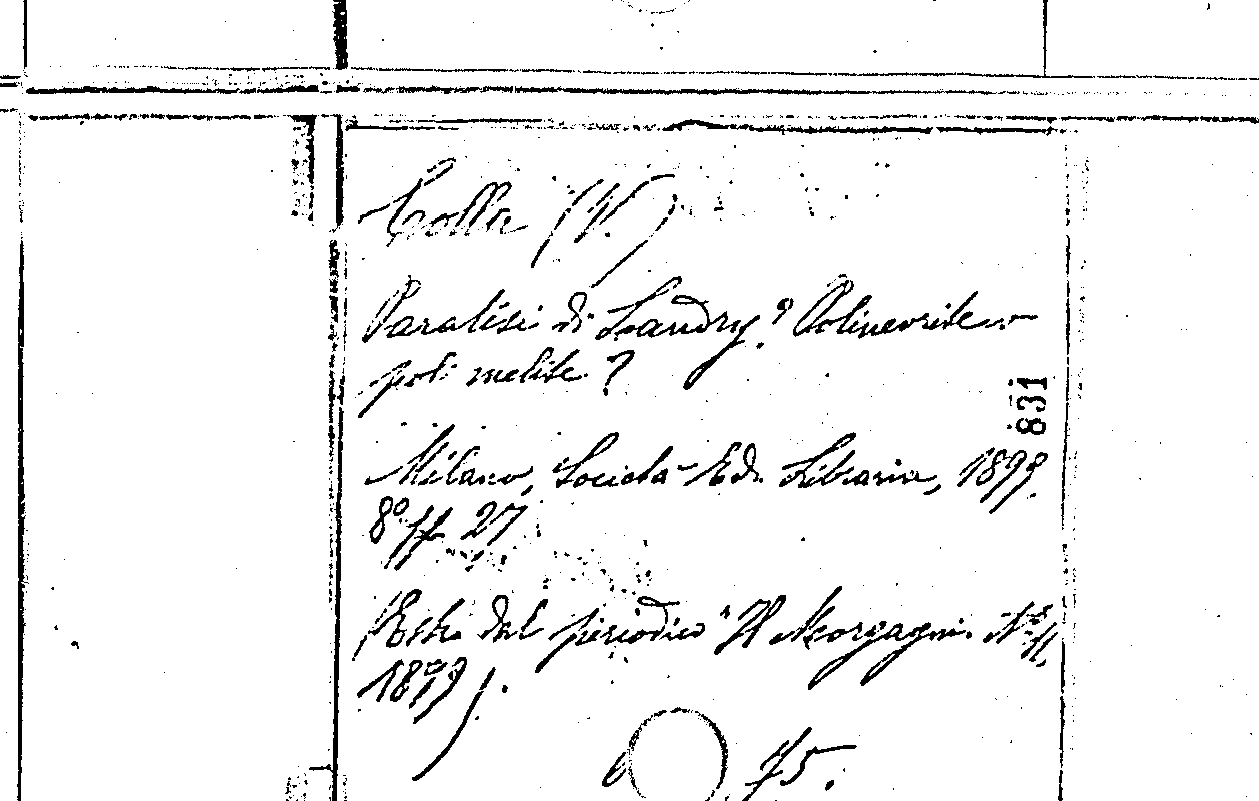 Colla (V.)
Paralisi di Landry? Polinevrite o
poli mielite?
831
Milano, Società Ed. Libraria, 1899.
8° pp. 27
(Estr. dal periodico "Il Morgagni" N° 11,
1899).
75.